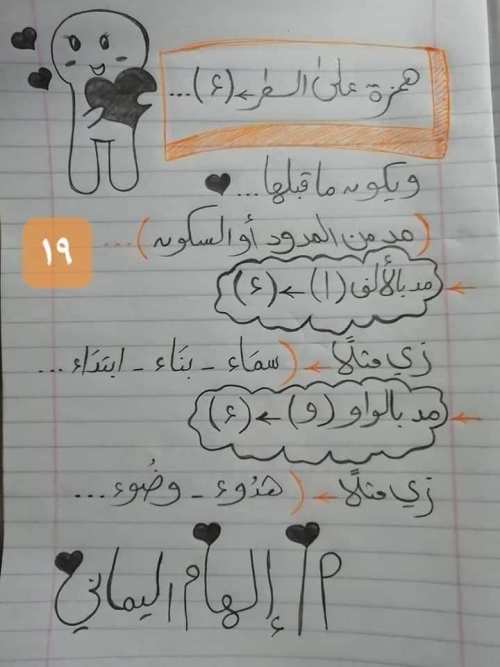 همزة على السطر ← (ء) ...
ويكون ما قبلها ...
(مد من المدود أو السكون) ...
١٩
مد بالألف (ا) ← (ء)
زي مثلًا ← (سمَاء - بنَاء - ابتدَاء ...
مد بالواو (و) ← (ء)
زي مثلًا ← (هدُوء - وضُوء ...
م / إلهام اليماني